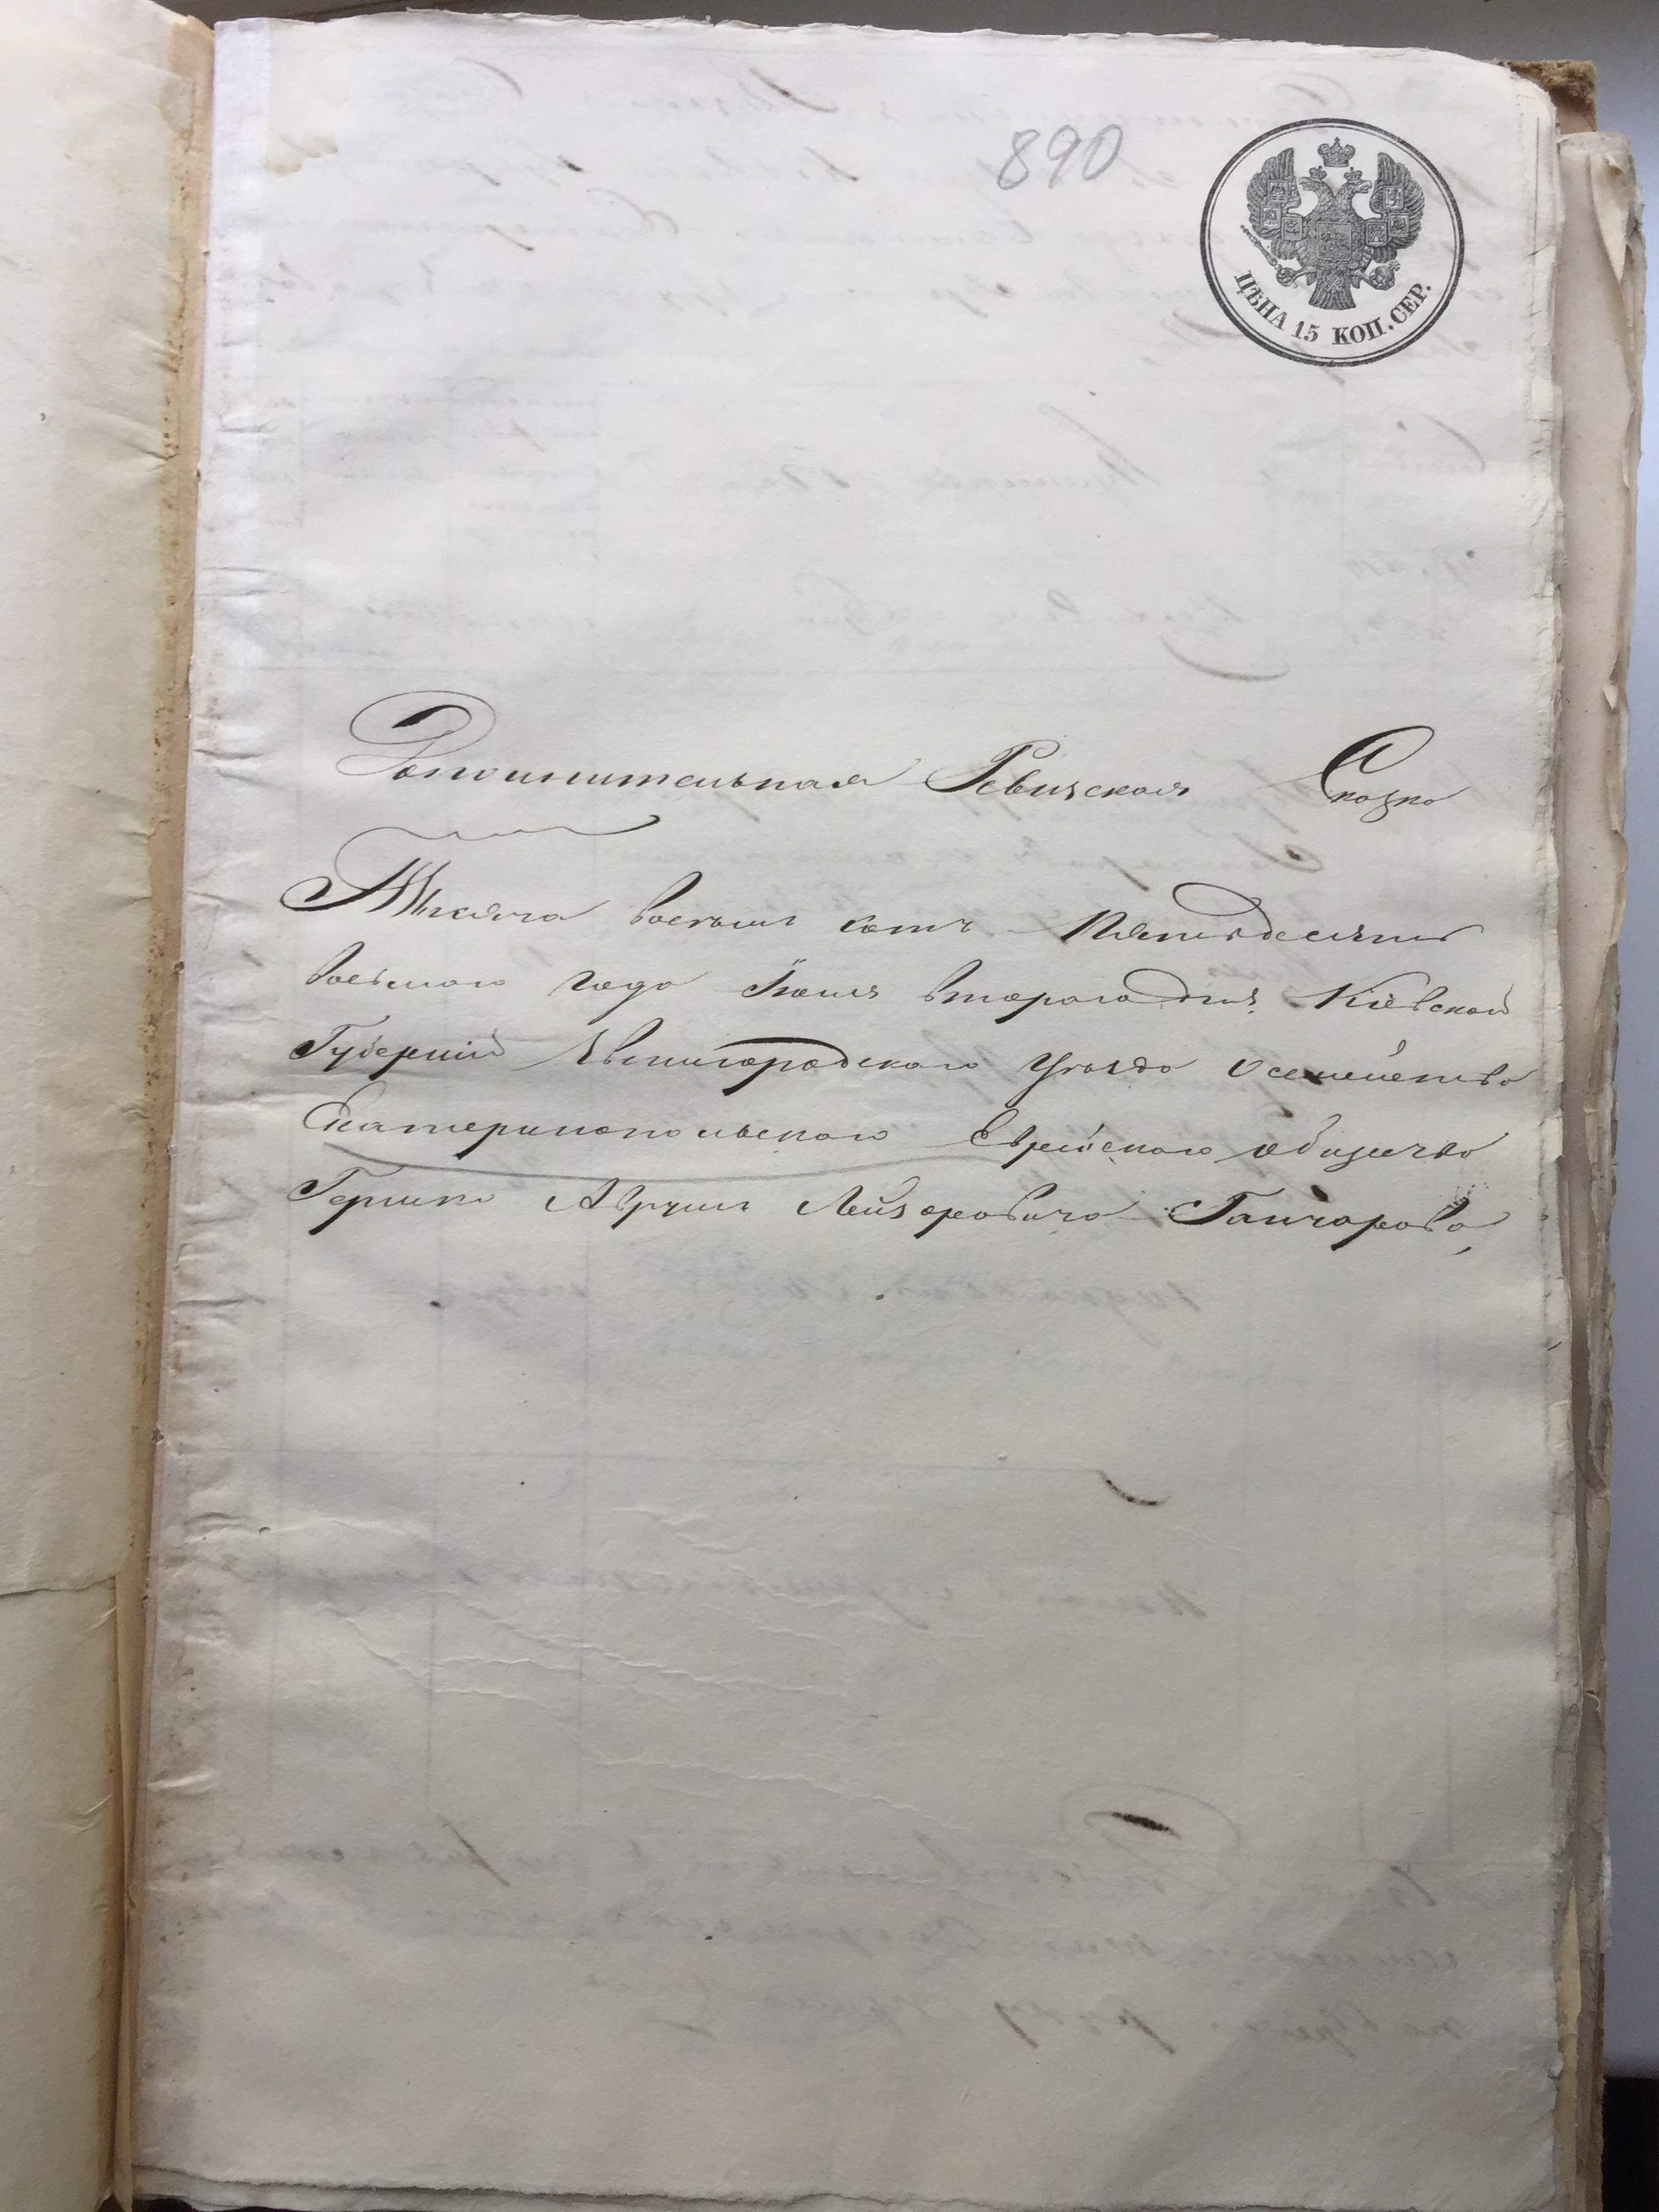 890
ЦѢНА 15 КОП. СЕР.
Дополнительная Ревизская Сказка
Тысяча восемь сотъ пятьдесятъ
восьмого года Іюня второго дня. Кіевской
Губерніи Звенигородского уѣзда о семействѣ
Екатеринопольского Еврейского общества
Гершка Аврумъ Лейзоровича Ганчарова,